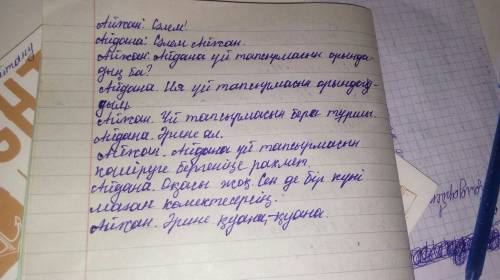 Айжан: Сәлем!
Айдана: Сәлем Айжан.
Айжан: Айдана үй тапсырмасын орында-
дың ба?
Айдана. Ия үй тапсырмасын орындад-
дым
Айжан. Үй тапсырмасын бере тұршы.
Айдана. Әрине ал.
Айжан. Айдана үй тапсырмасын
көшіруге бергеніңе рахмет.
Айдана. Оқасы жоқ. Сен де бір күні
маған көмектесерсің.
Айжан. Әрине қуана-қуана.